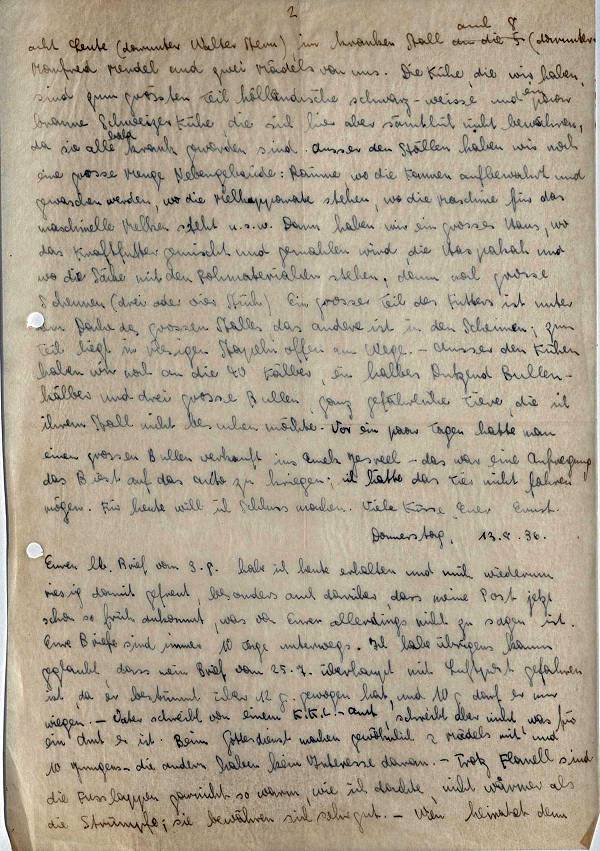 2
acht Leute (darunter Walter Stern) im kranken Stall auch 8 (darunter
Manfred Mendel und zwei Mädels von uns. Die Kühe, die wir haben,
sind zum grössten Teil holländische schwarz-weisse und ein paar
braune Schweizer Kühe, die sich hier aber sämtlich nicht bewähren,
da sie alle bald krank geworden sind. Ausser den Ställen haben wir noch
eine grosse Menge Nebengebäude: Räume wo die Kannen aufbewahrt und
gewaschen werden, wo die Melkapparate stehen, wo die Maschine für das
maschinelle Melken steht u.s.w. Dann haben wir ein grosses Haus, wo
das Kraftfutter gemischt und gemahlen wird die Haspakah und
wo die Säcke mit den Rohmaterialien stehen, dann noch grosse
Scheunen (drei oder vier Stück) Ein grosser Teil des Futters ist unter
dem Dache des grossen Stalles das andere ist in den Scheunen; zum
Teil liegt in riesigen Stapeln offen am Wege. - Ausser den Kühen
haben wir noch an die 40 Kälber, ein halbes Dutzend Bullen-
kälber und drei grosse Bullen, ganz gefährliche Tiere, die ich
ihrem Stall nicht besuchen möchte. Vor ein paar Tagen hatte man
einen grossen Bullen verkauft ins Emek Jesreel - das war eine Aufregung
das Biest auf das Auto zu kriegen; ich hätte das Tier nicht fahren
mögen. Für heute will ich Schluss machen. Viele Küsse, Euer Ernst.
Donnerstag, 13.8.36.
Euren lb. Brief vom 3.8. habe ich heute erhalten und mich wiederum
riesig damit gefreut, besonders auch darüber, dass meine Post jetzt
schon so früh ankommt, was von Eurer allerdings nicht zu sagen ist.
Eure Briefe sind immer 10 Tage unterwegs. Ich habe übrigens kaum
geglaubt, dass mein Brief vom 25.7. überhaupt mit Luftpost gefahren
ist, da er bestimmt über 12 g. gewogen hat, und 10 g darf er nur
wiegen. - Vater schreibt von einem K.K.L.-Amt, schreibt aber nicht was für
ein Amt es ist. Beim Gottesdienst machen gewöhnlich 2 Mädels mit und
10 Jungens - die andern haben kein Interesse daran. - Trotz Flanell sind
die Fusslappen garnicht so warm, wie ich dachte, nicht wärmer als
die Strümpfe; sie bewähren sich sehr gut. - Wen heiratet denn